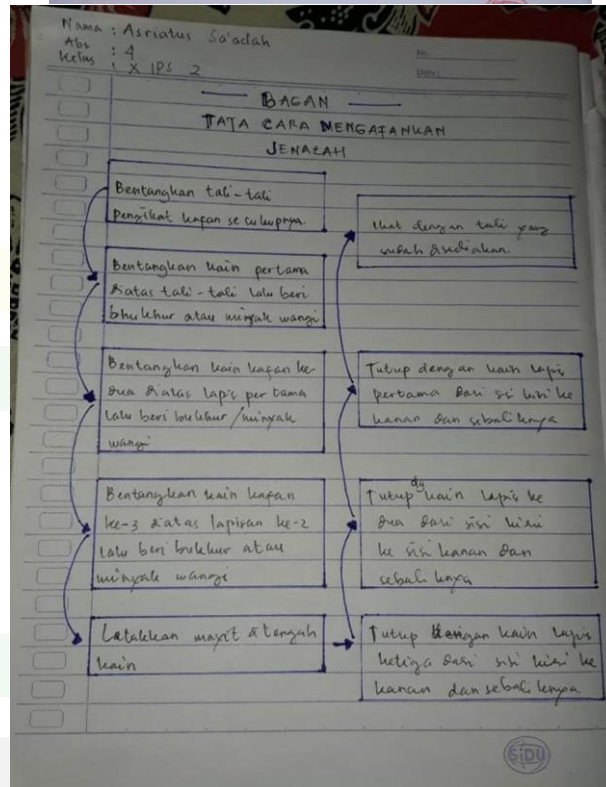 Nama : Asriatus Sa'adah
Abs : 4
Kelas : X IPS 2
No.
Date :
BAGAN
TATA CARA MENGAFANKAN
JENAZAH
Bentangkan tali-tali
pengikat kafan secukupnya.
Bentangkan kain pertama
diatas tali-tali lalu beri
bhukhur atau minyak wangi
Bentangkan kain kafan ke-
dua diatas lapis pertama
lalu beri bukhur/minyak
wangi
Bentangkan kain kafan
ke-3 diatas lapisan ke-2
lalu beri bukhur atau
minyak wangi
Letakkan mayit di tengah
kain
Tutup dengan kain lapis
ketiga dari sisi kiri ke
kanan dan sebaliknya
Tutup dg kain lapis ke
dua dari sisi kiri
ke sisi kanan dan
sebaliknya
Tutup dengan kain lapis
pertama dari sisi kiri ke
kanan dan sebaliknya
Ikat dengan tali yang
sudah disediakan.
SiDU